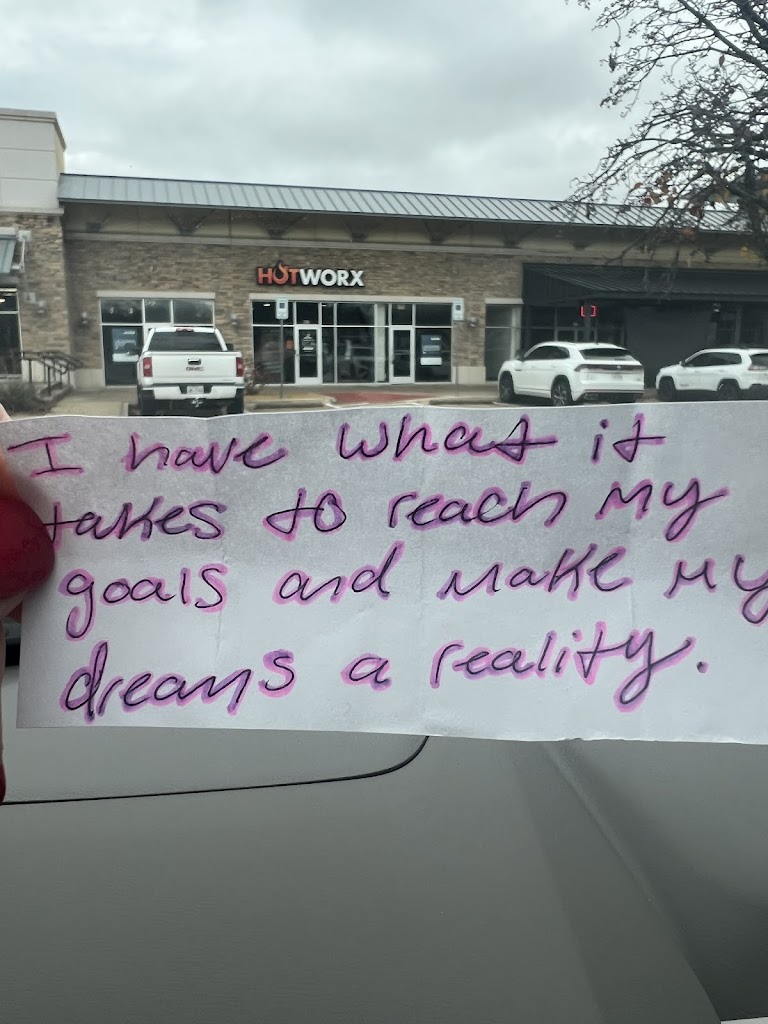 HOTWORX
I have what it
takes to reach my
goals and make my
dreams a reality.